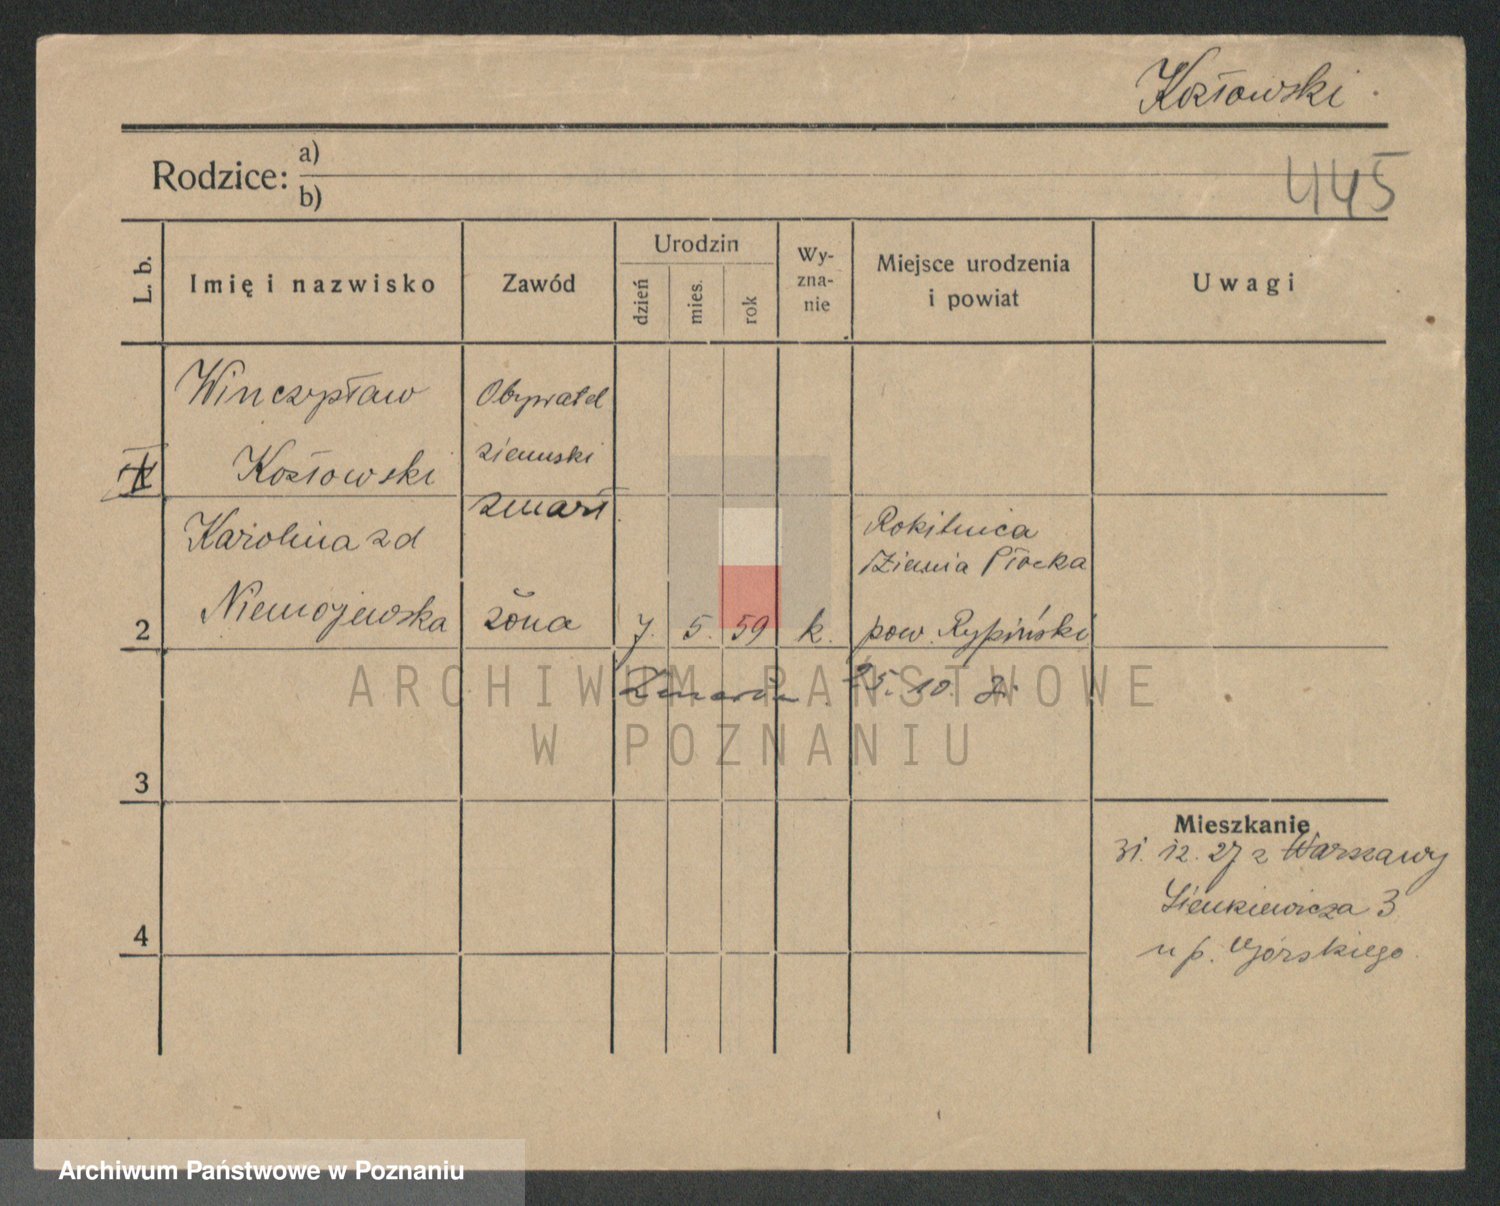 Kozłowski.
Rodzice:
a)
b)
445
L. b.
Imię i nazwisko
Zawód
Urodzin
dzień
mies.
rok
Wy-
zna-
nie
Miejsce urodzenia
i powiat
Uwagi
Kozłowski
Obywatel
ziemski
zmarł.
Karolina zd
Niemojewska
2
żona
7. 5. 59
k.
Rokitnica
Ziemia Płocka
pow. Rypiński
Zmarła
25. 10.
3
4
Mieszkanie
31. 12. 27 z Warszawy
Sienkiewicza 3
u p. Górskiego.
ARCHIWUM PAŃSTWOWE
W POZNANIU
Archiwum Państwowe w Poznaniu